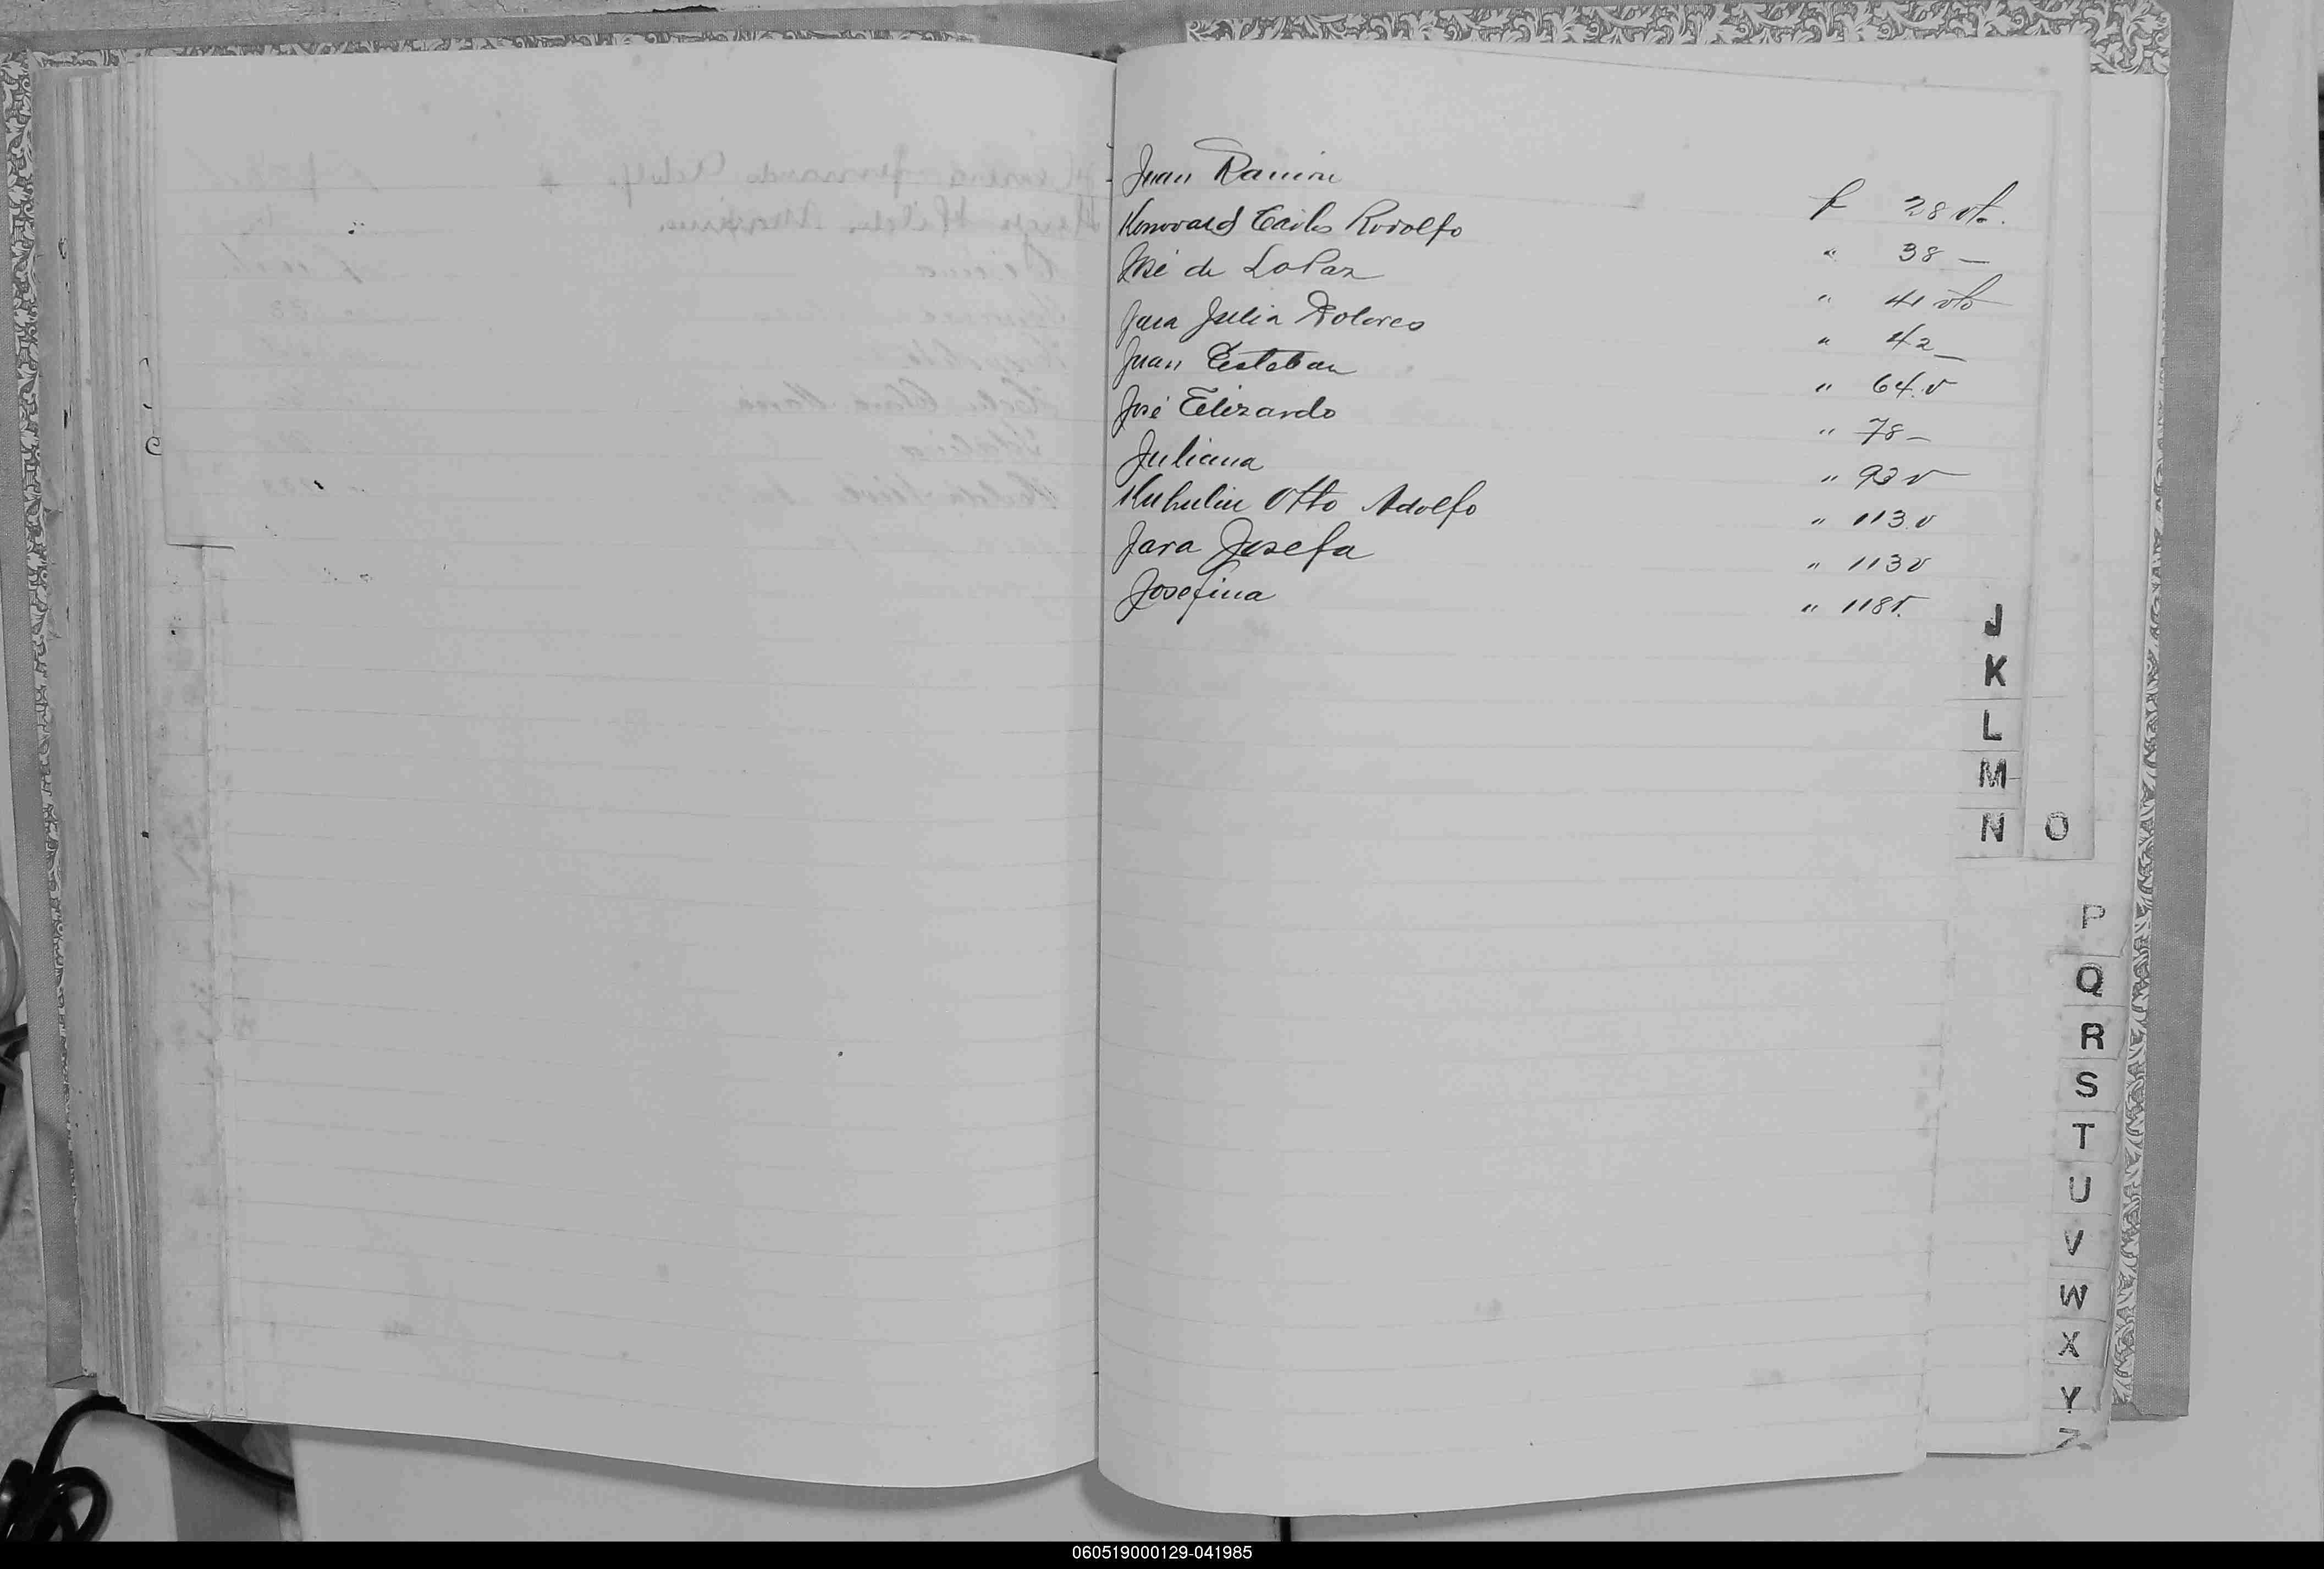 Juan Ramón f 28 vto.
Konovald Carlos Rodolfo " 38 —
José de La Paz " 41 vto
Jara Julia Dolores " 42 —
Juan Esteban " 64. v
José Elizardo " 78 —
Juliana " 93 v
Kuhulin Otto Adolfo " 113. v
Jara Josefa " 113 v
Josefina " 118 v.
J
K
L
M
N O
P
Q
R
S
T
U
V
W
X
Y
Z
060519000129-041985